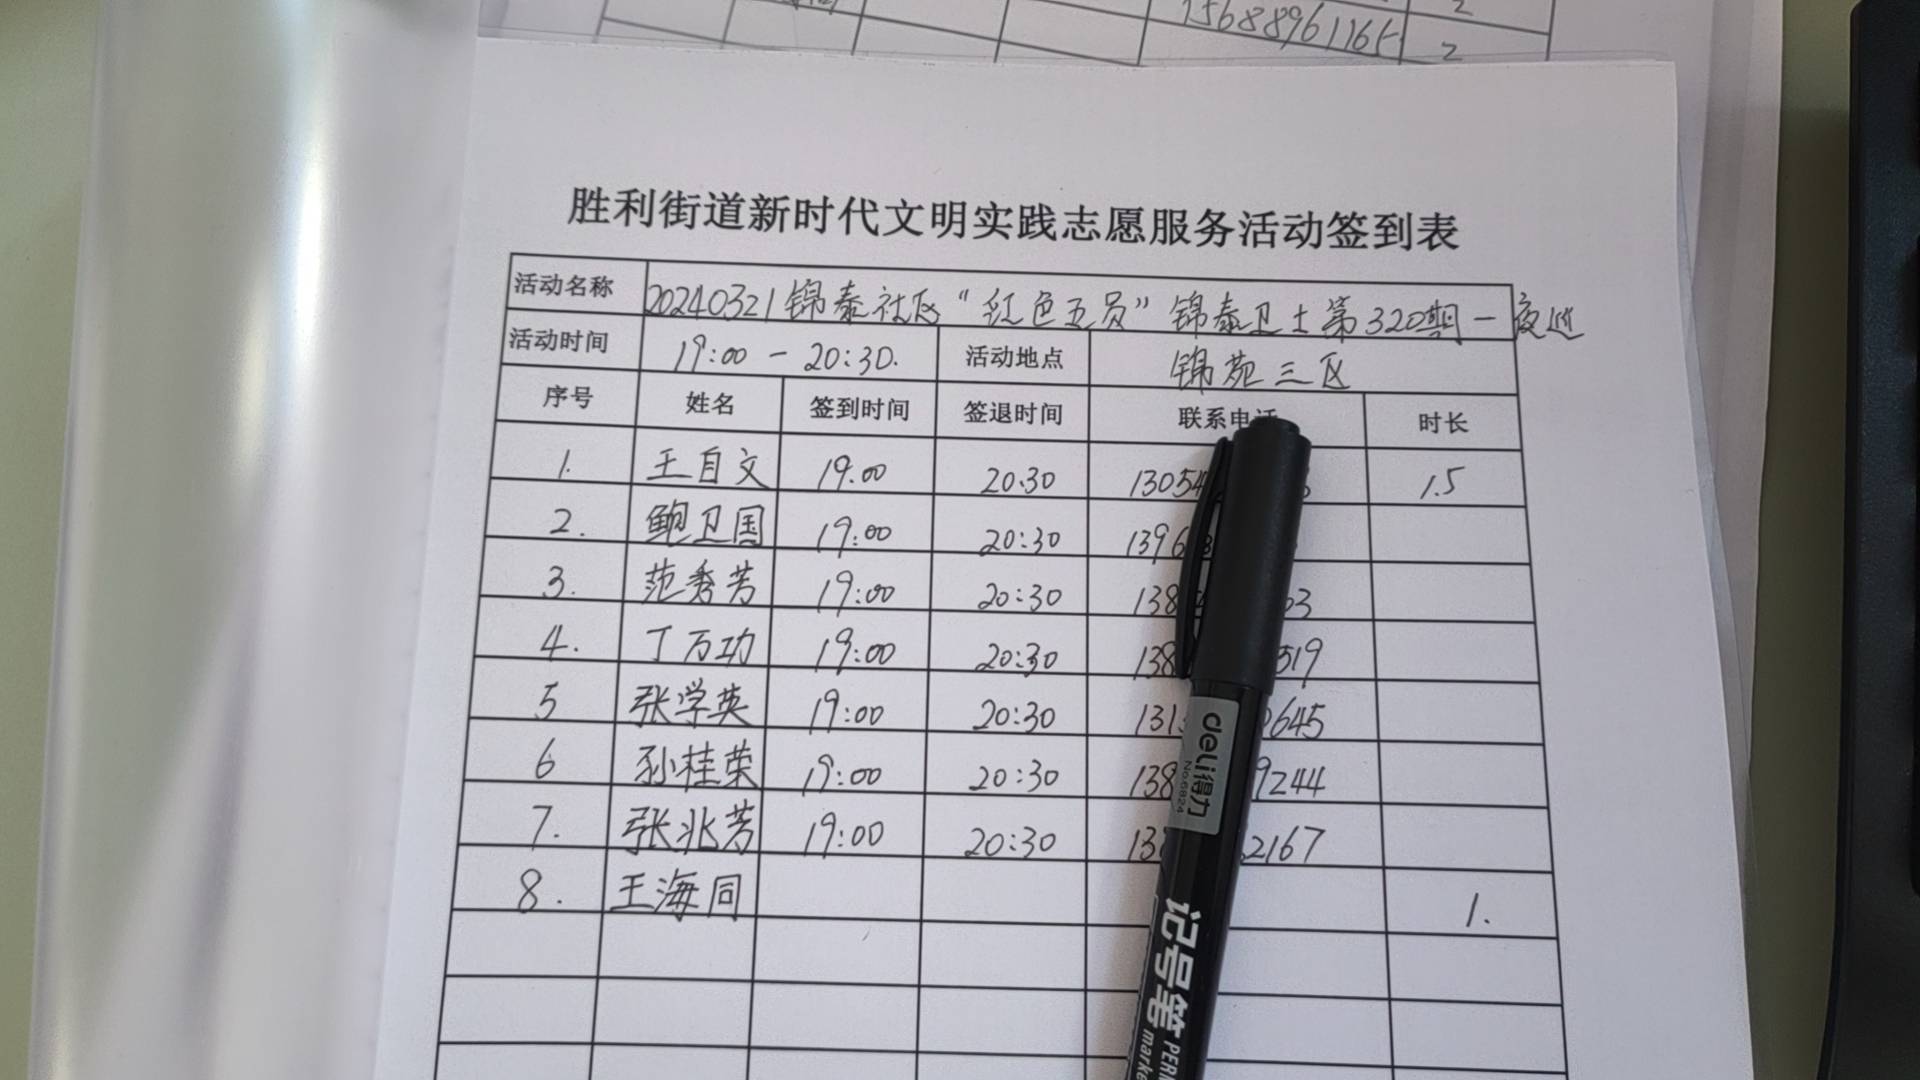 15688961165 2
2
胜利街道新时代文明实践志愿服务活动签到表
活动名称 20240321锦泰社区“红色五员”锦泰卫士第320期一夜巡
活动时间 19:00-20:30. 活动地点 锦苑三区
序号 姓名 签到时间 签退时间 联系电话 时长
1. 王自文 19:00 20:30 13054 1.5
2. 鲍卫国 19:00 20:30 1396
3. 范秀芳 19:00 20:30 138 63
4. 丁万功 19:00 20:30 138 519
5 张学英 19:00 20:30 131 0645
6 孙桂荣 19:00 20:30 138 9244
7. 张兆芳 19:00 20:30 13 2167
8. 王海同 1.
deli得力
No.6824
记号笔 PER
marke